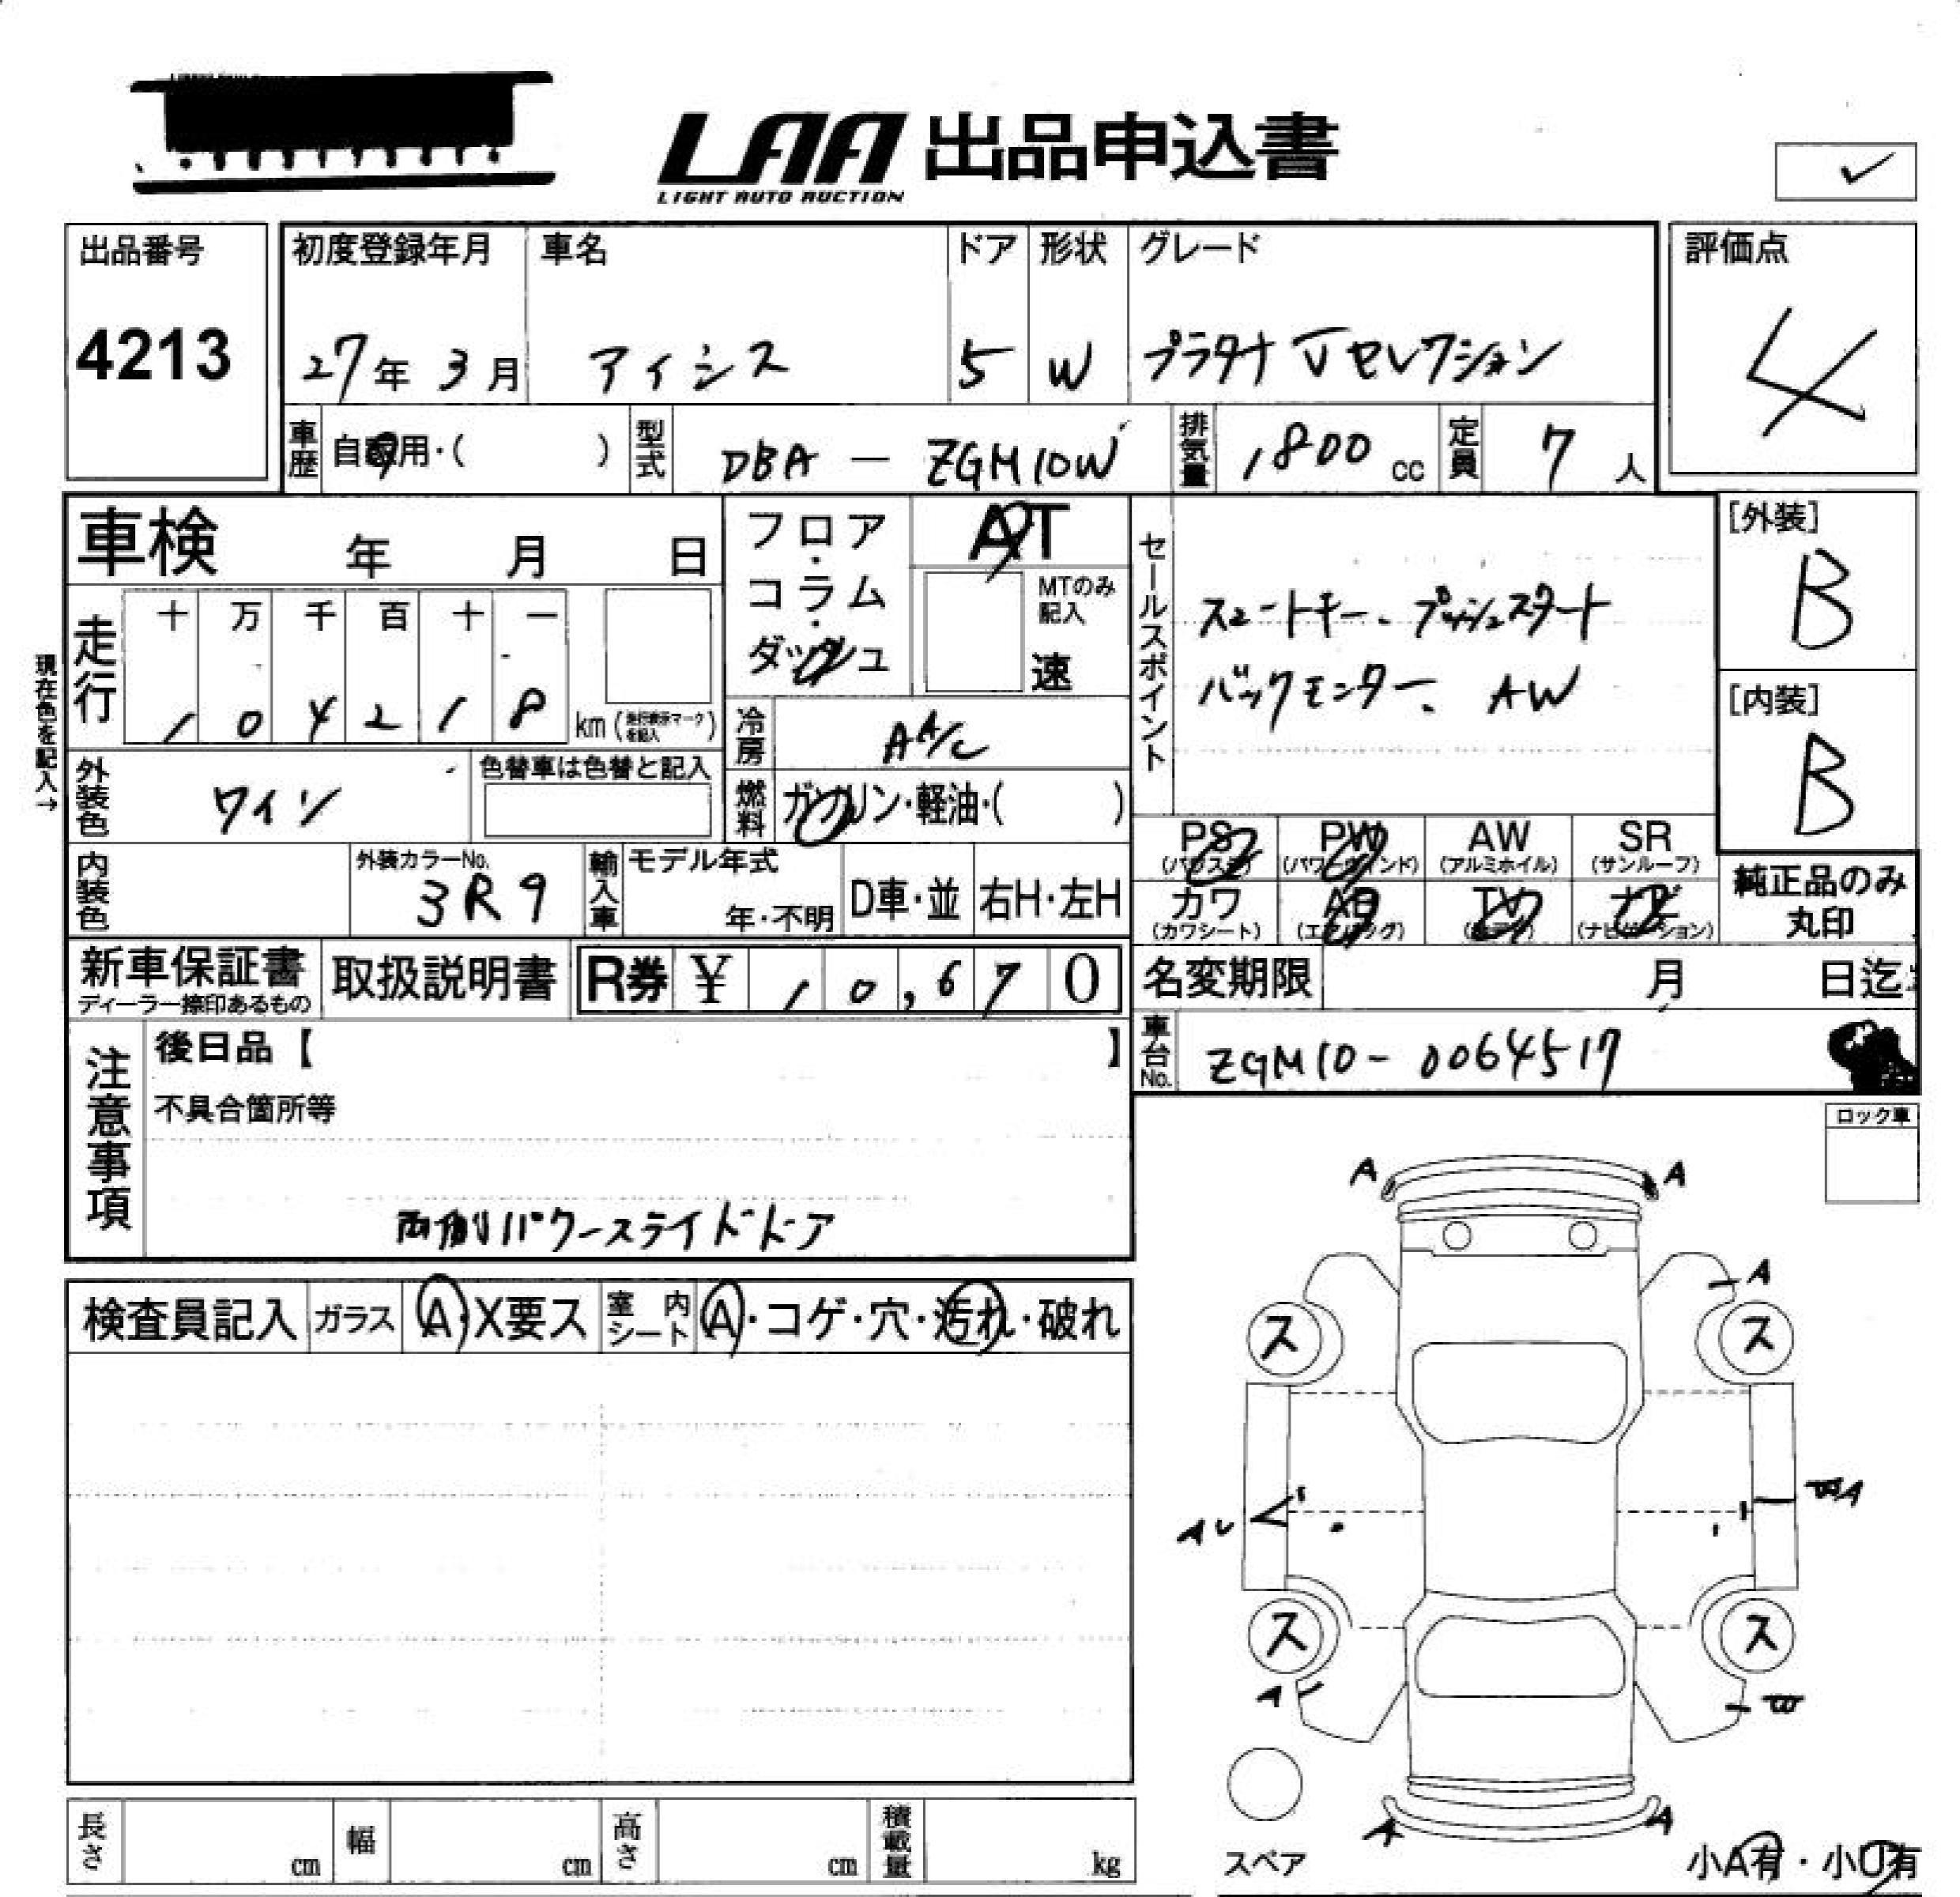 LAA 出品申込書
LIGHT AUTO AUCTION
出品番号 初度登録年月 車名 ドア 形状 グレード 評価点
4213 27年 3月 アイシス 5 W プラタナ Vセレクション 4
車歴 自家用・( ) 型式 DBA - ZGM10W 排気量 1800 cc 定員 7 人
車検 年 月 日
フロア・コラム・ダッシュ AT
MTのみ記入 速
セールスポイント
スマートキー. プッシュスタート
バックモニター. AW
[外装] B
[内装] B
現在色を記入→
走行 十 万 千 百 十 一
1 0 4 2 1 8 km (走行表示マークを記入)
冷房 AA/C
外装色 ワイン 色替車は色替と記入
燃料 ガソリン・軽油・( )
PS (パワステ) PW (パワーウインド) AW (アルミホイル) SR (サンルーフ)
カワ (カワシート) AB (エアバッグ) TV ナビ (ナビゲーション)
純正品のみ丸印
内装色 外装カラーNo. 3R9 輸入車 モデル年式 年・不明 D車・並 右H・左H
新車保証書 取扱説明書 R券 ¥ 10,670
ディーラー捺印あるもの
名変期限 月 日迄
車台No. ZGM10-0064517
注意事項 後日品【 】
不具合箇所等
両側パワースライドドア
ロック車
検査員記入 ガラス A・X要ス 室内シート A・コゲ・穴・汚れ・破れ
A A
A
ス ス
ス ス
A
A A
スペア
小A有・小U有
長さ cm 幅 cm 高さ cm 積載量 kg